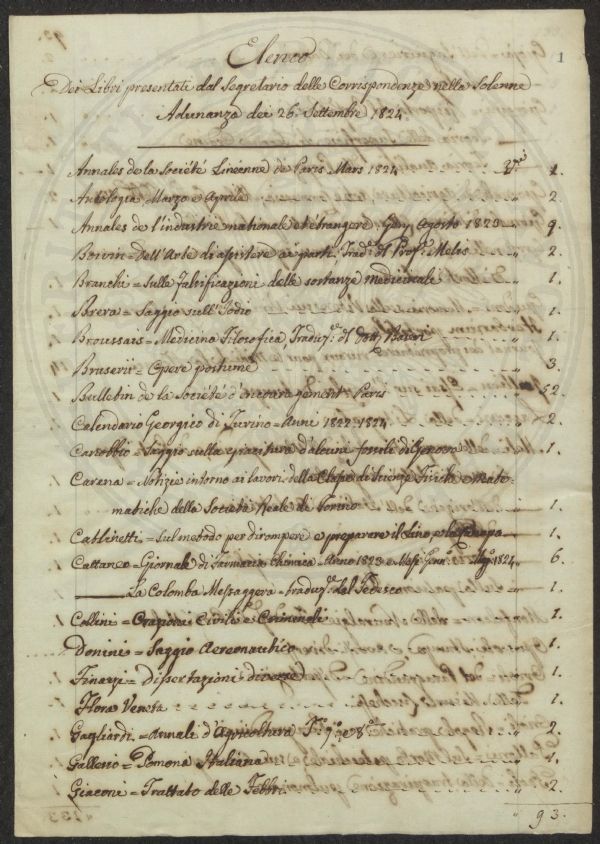 Elenco
1
Dei Libri presentati dal Segretario delle Corrispondenze nella Solenne
Adunanza dei 26. Settembre 1824
Annales de la Société Linéenne de Paris Mars 1824 " 1.
Antologia, Marzo e Aprile " 2.
Annales de l'industrie nationale et étrangere, Agosto 1823 " 9.
Boivin = Dell'Arte di assistere ai parti. Trad.e del Prof.e Melis " 2.
Branchi = Sulle falsificazioni delle sostanze medicinale " 1.
Brera = Saggio sull'Iodio " 1.
Broussais = Medicina Filosofica, Traduz.e del Dott.
Bruserii = Opere postume " 3.
Bulletin de la Société d'encouragement. Paris " 52.
Calendario Georgico di Turino = Anni 1822-1824 " 2.
Canobbio = Saggio sulla giacitura d'alcuni fossili di Genova " 1.
Carena = Notizie intorno ai lavori della Classe di Scienze Fisiche e Mate-
matiche della Società Reale di Torino " 1.
= Sul metodo per dirompere e preparare il Lino, e la Canapa " 1.
Cattaneo = Giornale di Farmacia Chimica = Anno 1823 e Mesi Genn.o Mag.o 1824 " 6.
La Colomba Messaggera = traduz.e del Tedesco " 1.
Collini = Orazioni Civili e Criminali " 1.
Donini = Saggio Aereonautico " 1.
Finazzi = dissertazioni diverse " 1.
Flora Veneta " 1.
Gagliardi = Annali d'Agricoltura T.i 7.o e 8.o " 2.
Gallesio = Pomona Italiana " 1.
Giacomi = Trattato delle Febbri " 2.
" 93.